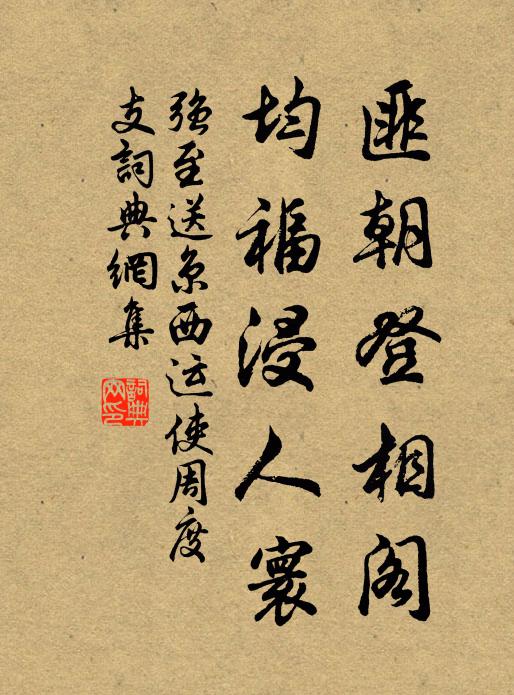 匪朝登相阁
均福浸人寰
强至送京西运使周度
支詞典網集
詞典网印